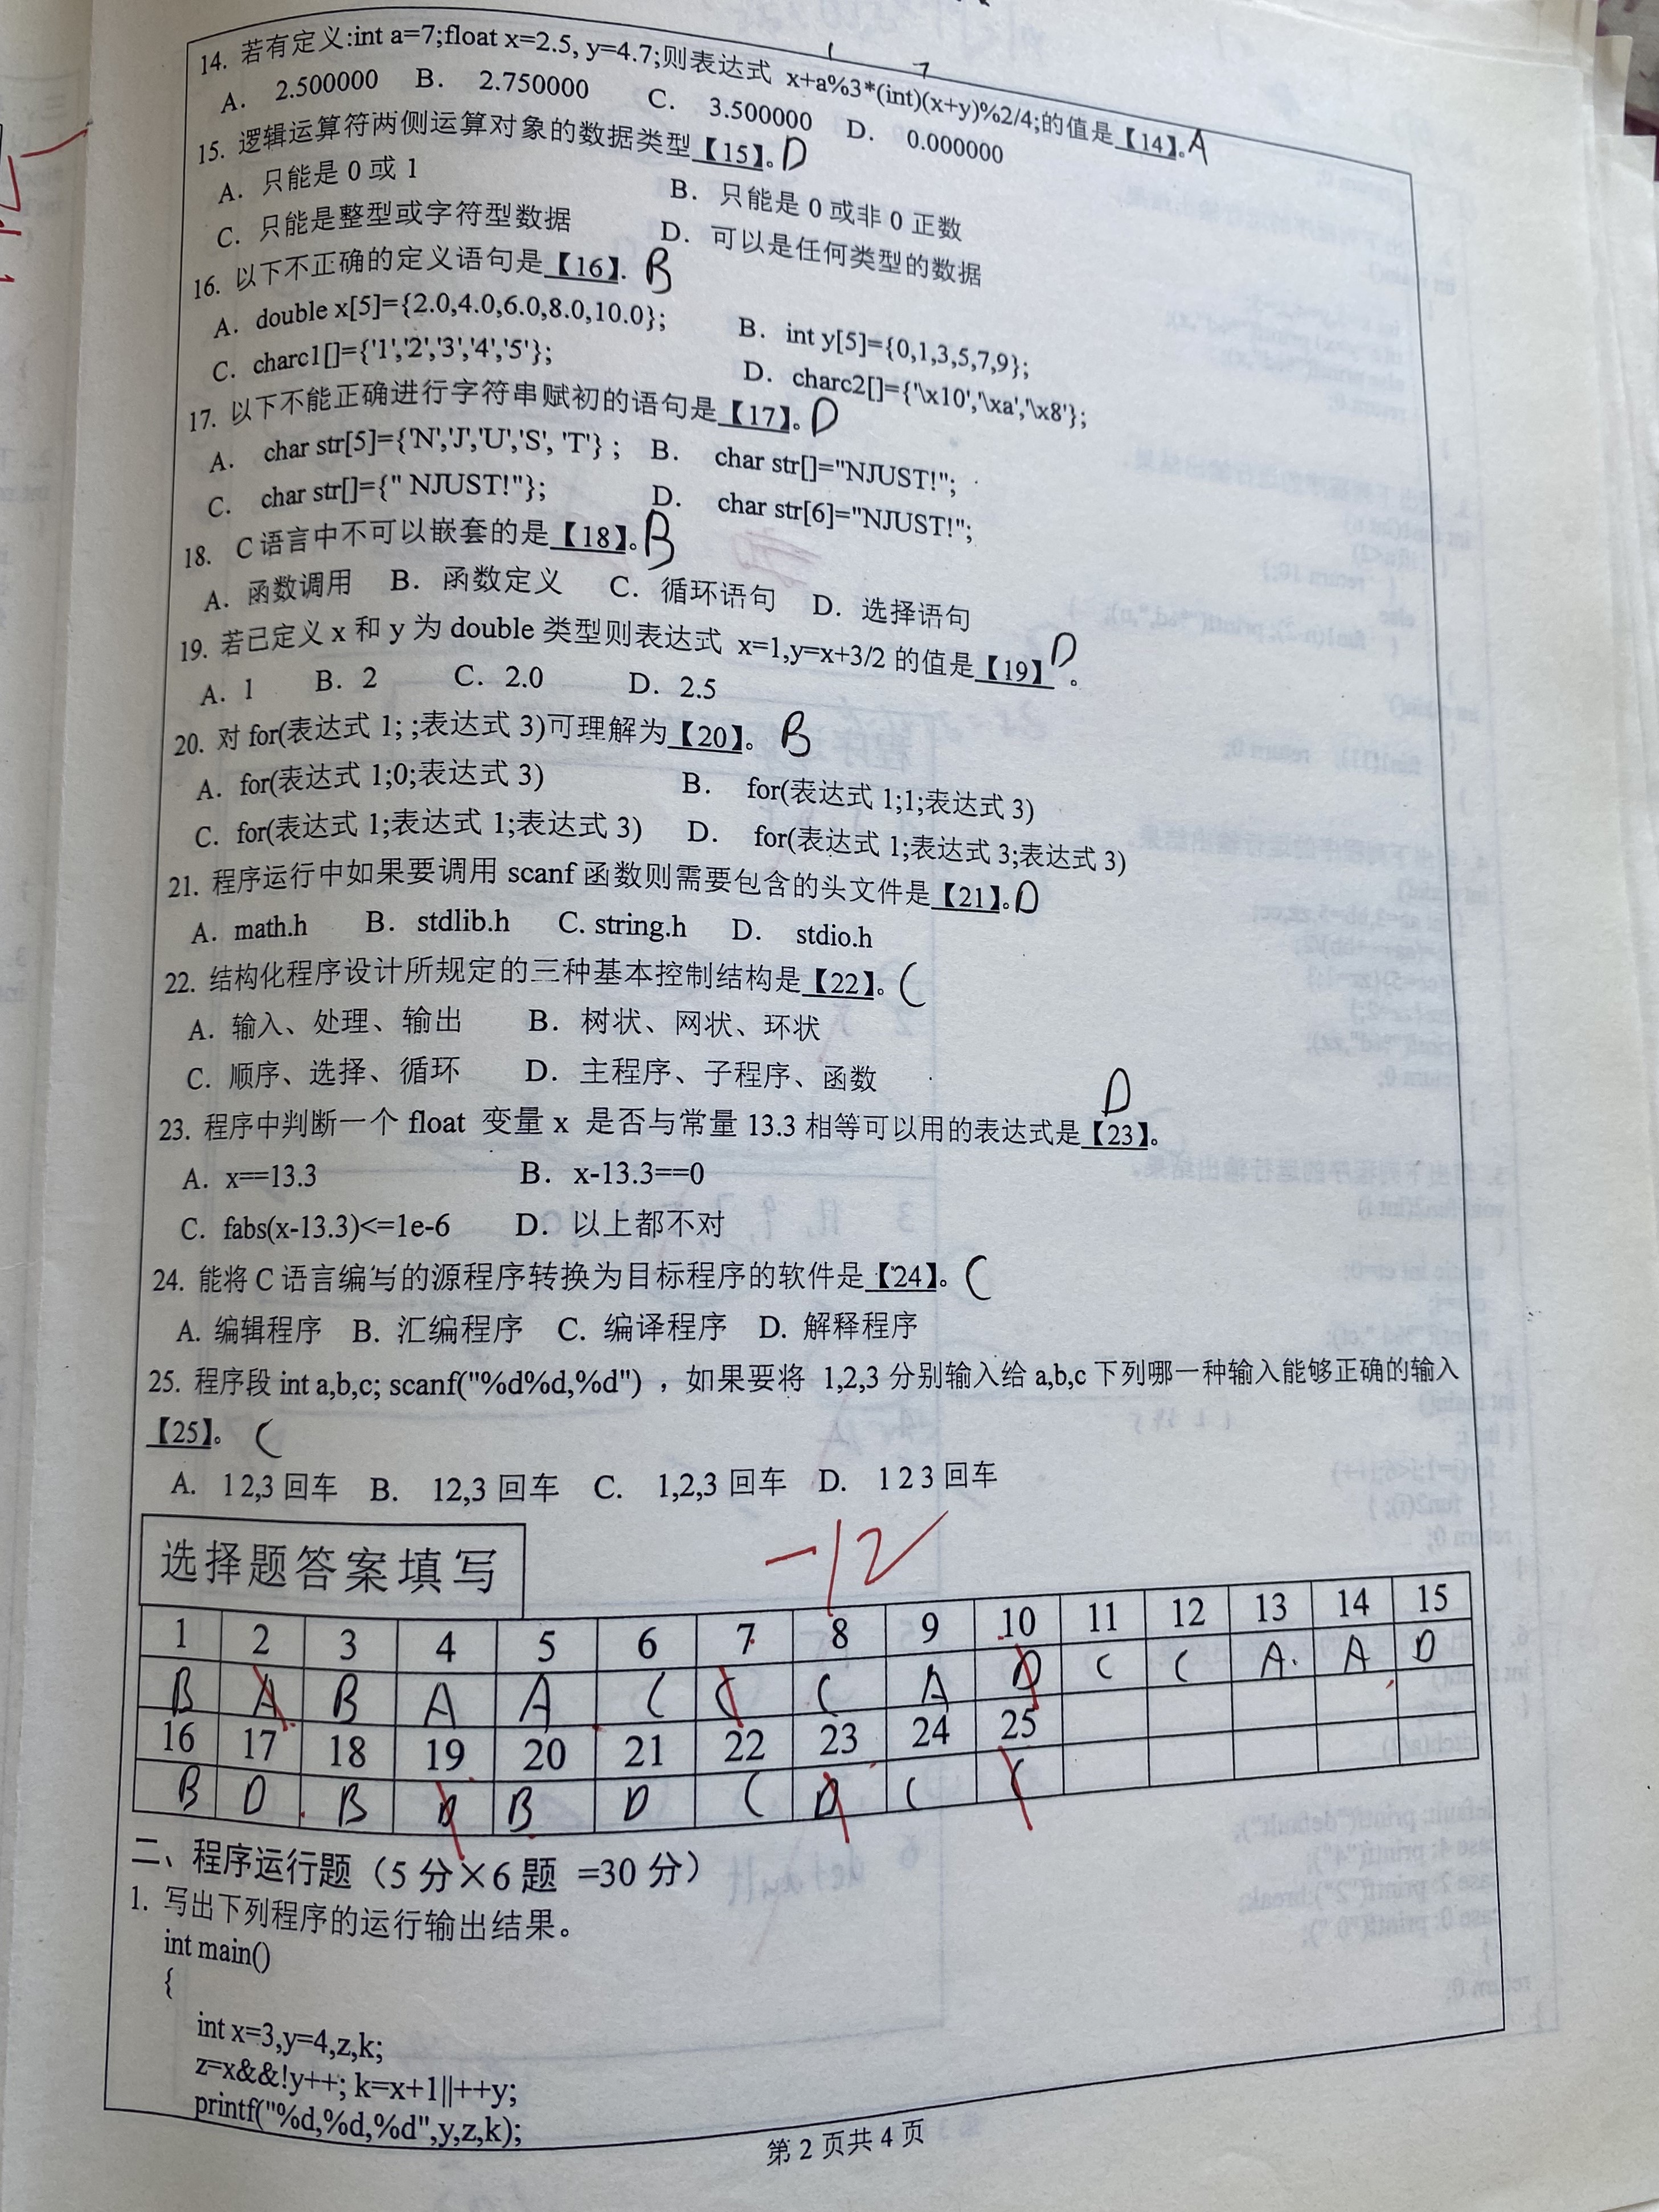 14. 若有定义:int a=7;float x=2.5, y=4.7;则表达式 x+a%3*(int)(x+y)%2/4;的值是【14】。A
1 7
A. 2.500000 B. 2.750000 C. 3.500000 D. 0.000000
15. 逻辑运算符两侧运算对象的数据类型【15】。D
A. 只能是 0 或 1 B. 只能是 0 或非 0 正数
C. 只能是整型或字符型数据 D. 可以是任何类型的数据
16. 以下不正确的定义语句是【16】. B
A. double x[5]={2.0,4.0,6.0,8.0,10.0}; B. int y[5]={0,1,3,5,7,9};
C. charc1[]={'1','2','3','4','5'}; D. charc2[]={'\x10','\xa','\x8'};
17. 以下不能正确进行字符串赋初的语句是【17】。D
A. char str[5]={'N','J','U','S', 'T'} ; B. char str[]="NJUST!";
C. char str[]={" NJUST!"}; D. char str[6]="NJUST!";
18. C 语言中不可以嵌套的是【18】。B
A. 函数调用 B. 函数定义 C. 循环语句 D. 选择语句
19. 若已定义 x 和 y 为 double 类型则表达式 x=1,y=x+3/2 的值是【19】。D
A. 1 B. 2 C. 2.0 D. 2.5
20. 对 for(表达式 1; ;表达式 3)可理解为【20】。B
A. for(表达式 1;0;表达式 3) B. for(表达式 1;1;表达式 3)
C. for(表达式 1;表达式 1;表达式 3) D. for(表达式 1;表达式 3;表达式 3)
21. 程序运行中如果要调用 scanf 函数则需要包含的头文件是【21】。D
A. math.h B. stdlib.h C. string.h D. stdio.h
22. 结构化程序设计所规定的三种基本控制结构是【22】。C
A. 输入、处理、输出 B. 树状、网状、环状
C. 顺序、选择、循环 D. 主程序、子程序、函数
23. 程序中判断一个 float 变量 x 是否与常量 13.3 相等可以用的表达式是【23】。D
A. x==13.3 B. x-13.3==0
C. fabs(x-13.3)<=1e-6 D. 以上都不对
24. 能将 C 语言编写的源程序转换为目标程序的软件是【24】。C
A. 编辑程序 B. 汇编程序 C. 编译程序 D. 解释程序
25. 程序段 int a,b,c; scanf("%d%d,%d") ，如果要将 1,2,3 分别输入给 a,b,c 下列哪一种输入能够正确的输入
【25】。C
A. 1 2,3 回车 B. 12,3 回车 C. 1,2,3 回车 D. 1 2 3 回车
选择题答案填写
-12
1 2 3 4 5 6 7 8 9 10 11 12 13 14 15
B A B A A C C C A D C C A. A D
16 17 18 19 20 21 22 23 24 25
B D B D B D C D C C
二、程序运行题（5 分×6 题 =30 分）
1. 写出下列程序的运行输出结果。
int main()
{
int x=3,y=4,z,k;
z=x&&!y++; k=x+1||++y;
printf("%d,%d,%d",y,z,k);
第 2 页共 4 页